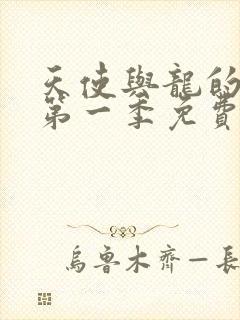 天使與龍的
第一季免費
烏魯木齊—長